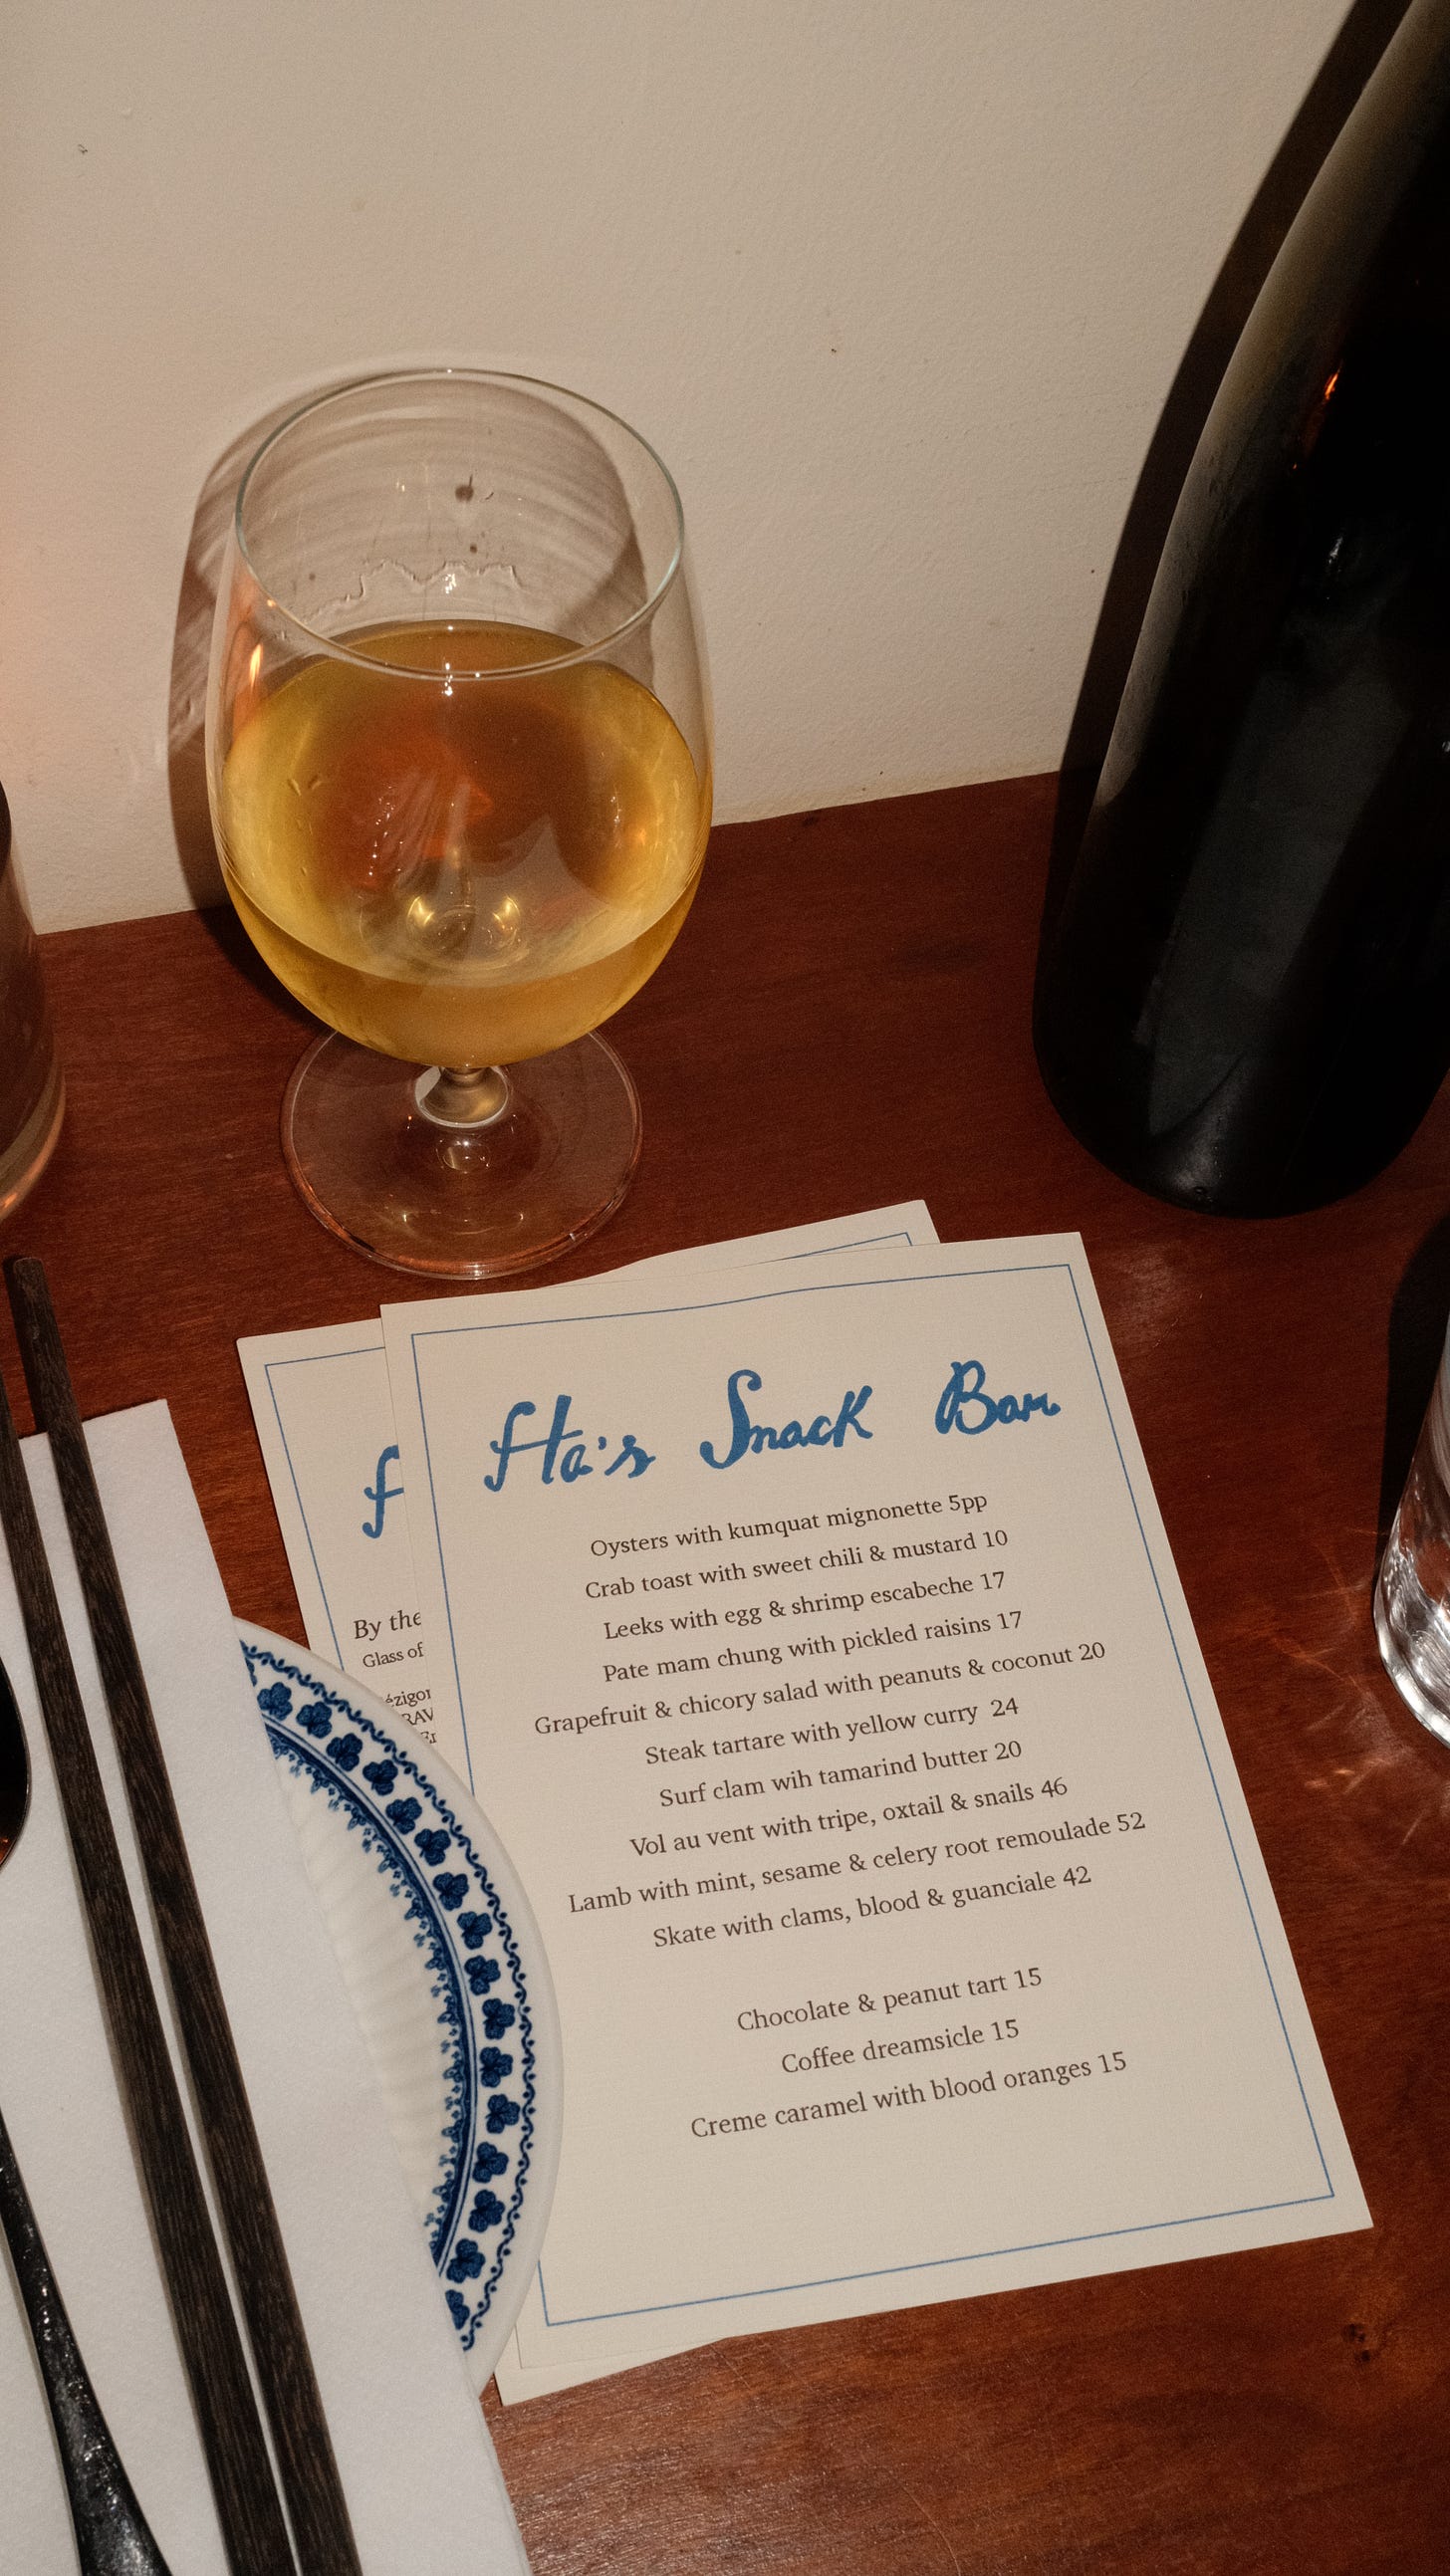 Ha's Snack Bar
Oysters with kumquat mignonette 5pp
Crab toast with sweet chili & mustard 10
Leeks with egg & shrimp escabeche 17
Pate mam chung with pickled raisins 17
Grapefruit & chicory salad with peanuts & coconut 20
Steak tartare with yellow curry 24
Surf clam wih tamarind butter 20
Vol au vent with tripe, oxtail & snails 46
Lamb with mint, sesame & celery root remoulade 52
Skate with clams, blood & guanciale 42
Chocolate & peanut tart 15
Coffee dreamsicle 15
Creme caramel with blood oranges 15
By the
Glass of